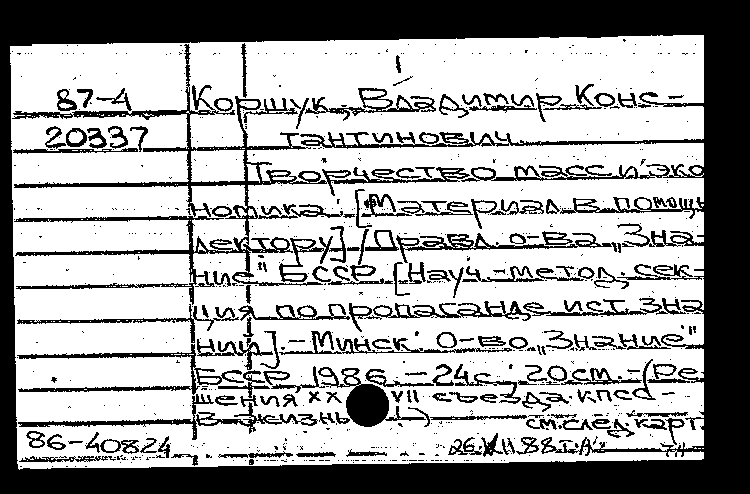 87-4 Коршук, Владимир Конс-
20337 тантинович.
Творчество масс и эко
номика: [Материал в помощь
лектору] / Правл. о-ва „Зна-
ние" БССР. [Науч.-метод. сек-
ция по пропаганде ист. зна
ний]. - Минск: О-во „Знание"
БССР, 1986. - 24с.; 20см. - (Ре-
шения XX VII съезда КПСС -
в жизнь !)
см. след. карт.
86-40824